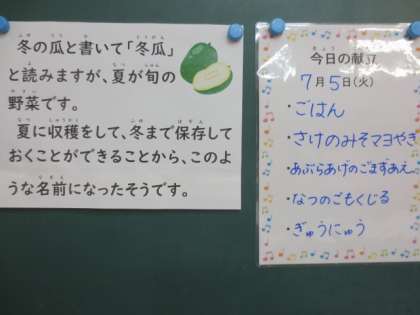 冬の瓜と書いて「冬瓜」
と読みますが、夏が旬の
野菜です。
夏に収穫をして、冬まで保存して
おくことができることから、このよ
うな名前になったそうです。
今日の献立
7月5日(火)
・ごはん
・さけのみそマヨやき
・あぶらあげのごまずあえ
・なつのごもくじる
・ぎゅうにゅう